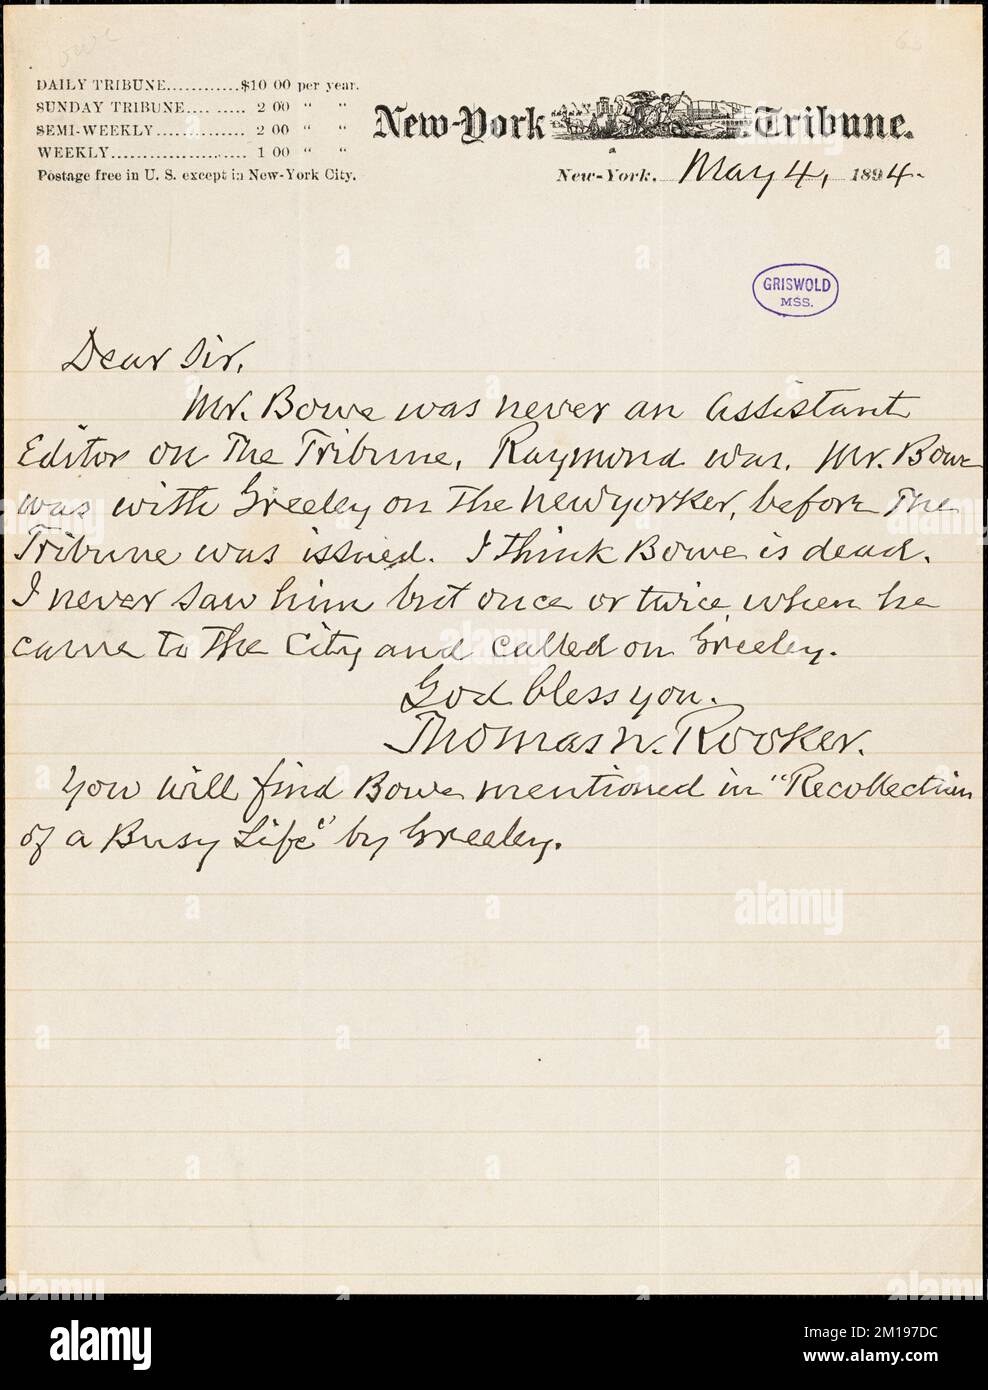 DAILY TRIBUNE............$10 00 per year.
SUNDAY TRIBUNE.......... 2 00 " "
SEMI-WEEKLY............... 2 00 " "
WEEKLY....................... 1 00 " "
Postage free in U. S. except in New-York City.
New-York Tribune.
New-York, May 4, 1894.
GRISWOLD
MSS.
Dear Sir,
Mr. Bowe was never an Assistant
Editor on The Tribune, Raymond was. Mr. Bowe
was with Greeley on the Newyorker, before The
Tribune was issued. I think Bowe is dead.
I never saw him but once or twice when he
came to the City and called on Greeley.
God bless you.
Thomas N. Rooker.
You will find Bowe mentioned in "Recollection
of a Busy Life" by Greeley.
alamy
Image ID: 2M197DC
www.alamy.com